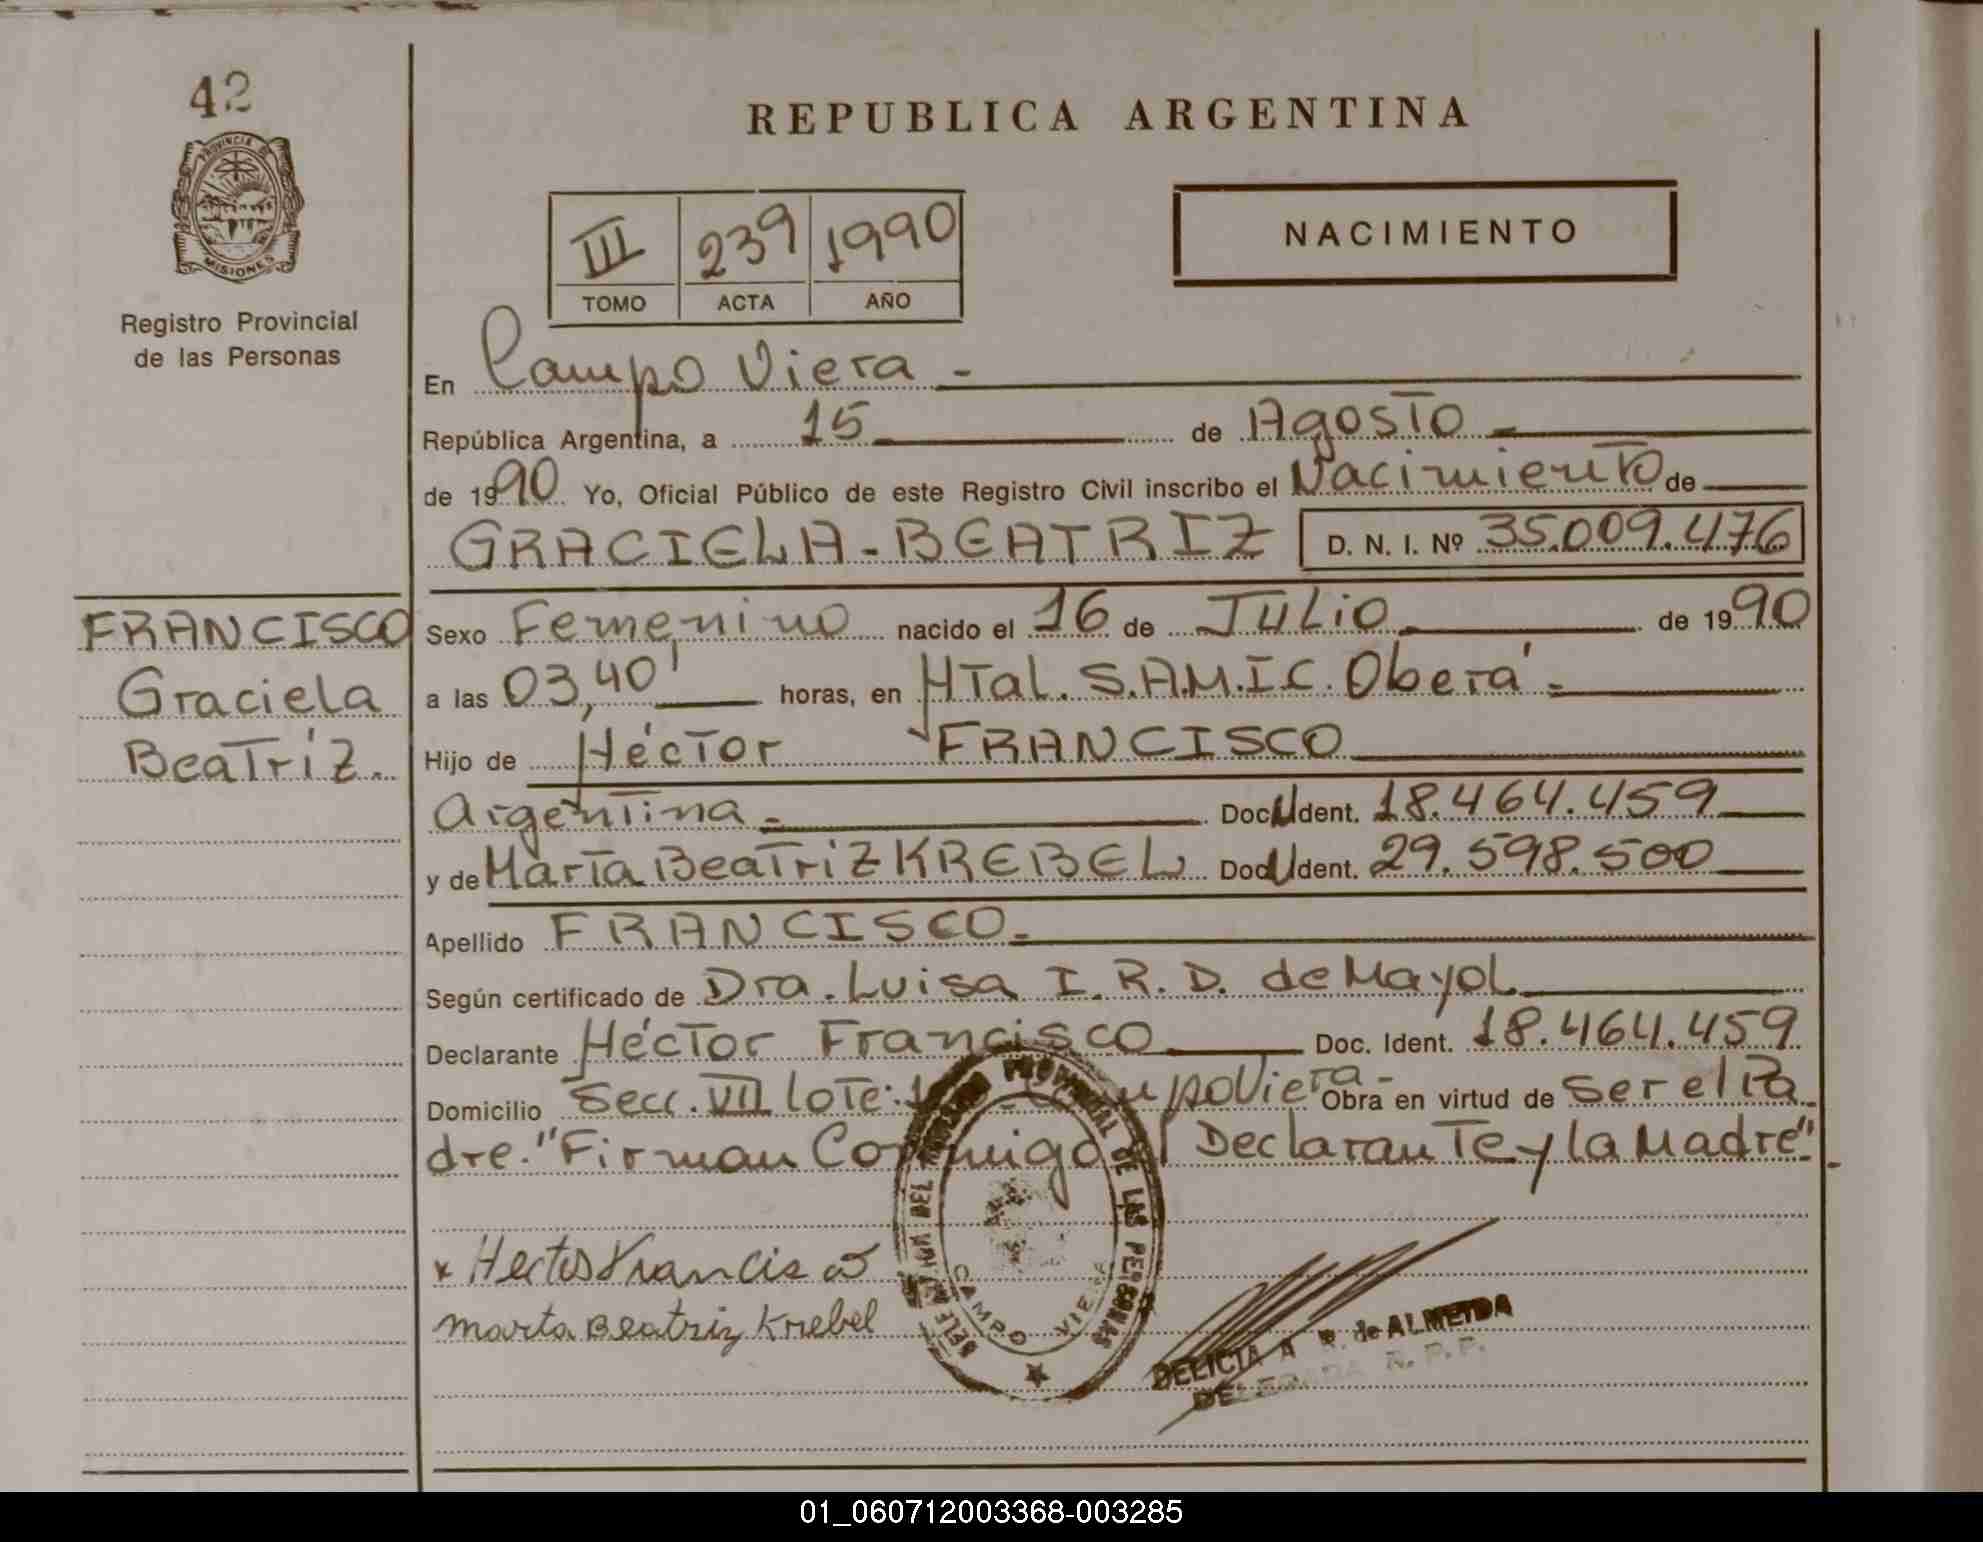 42
PROVINCIA DE
MISIONES
Registro Provincial
de las Personas
REPUBLICA ARGENTINA
III 239 1990
TOMO ACTA AÑO
NACIMIENTO
En Campo Viera -
República Argentina, a 15 de Agosto -
de 1990 Yo, Oficial Público de este Registro Civil inscribo el Nacimiento de
GRACIELA-BEATRIZ D. N. I. Nº 35.009.476
FRANCISCO
Graciela
Beatriz.
Sexo Femenino nacido el 16 de Julio de 1990
a las 03,40' horas, en HTal. S.A.M.I.C. Oberá -
Hijo de Héctor FRANCISCO
Argentina - Doc U Ident. 18.464.459
y de Marta Beatriz KREBEL Doc U Ident. 29.598.500
Apellido FRANCISCO.
Según certificado de Dra. Luisa I. R. D. de Mayol
Declarante Héctor Francisco Doc. Ident. 18.464.459
Domicilio Secc. VII lote: Viera - Obra en virtud de ser el Pa
dre." Firman Conmigo el Declarante y la Madre".
x Hector Francisco
Marta Beatriz Krebel
DEL REGISTRO PROVINCIAL DE LAS PERSONAS
CAMPO VIERA
DELICIA A R. de ALMEIDA
DELEGADA R. P. P.
01_060712003368-003285